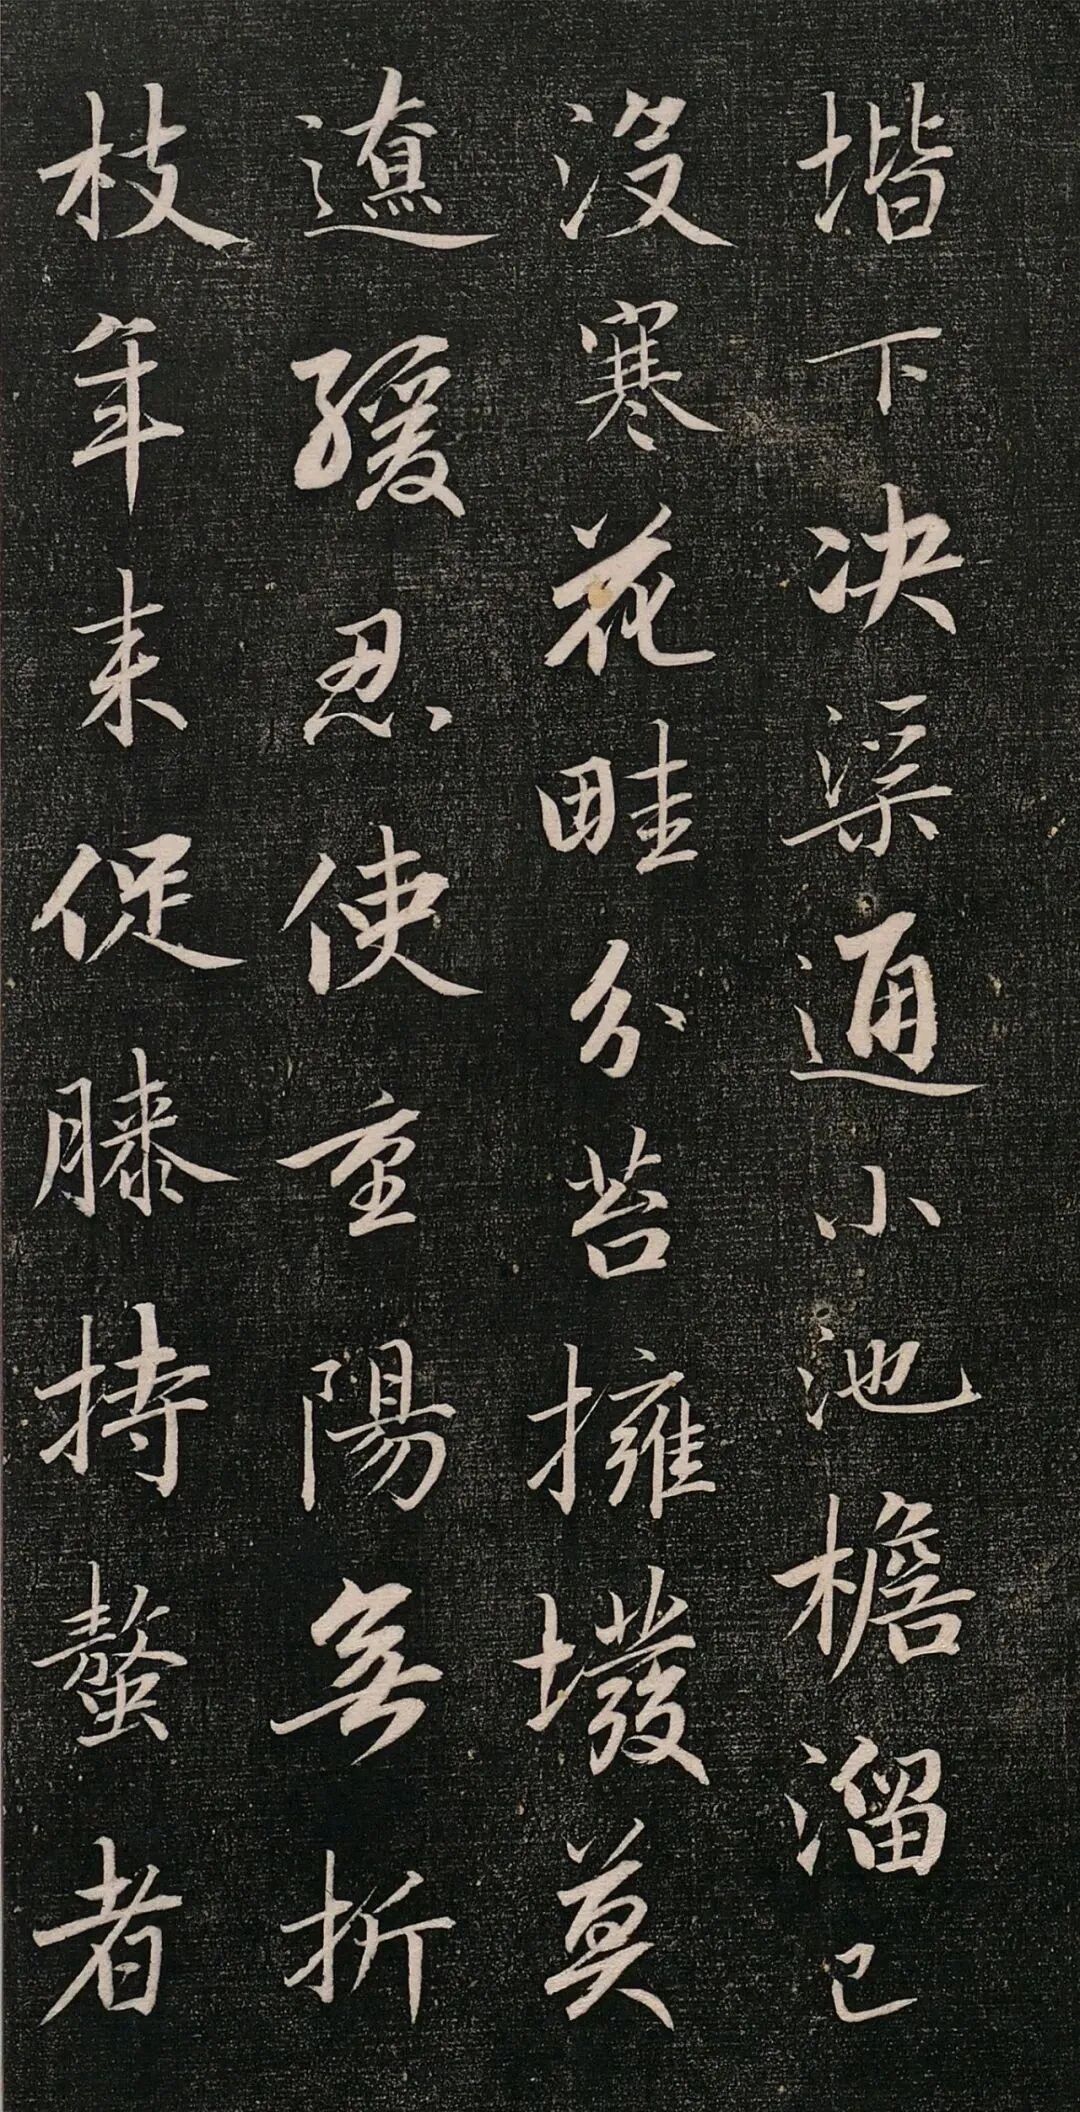 堦下决渠通小池檐溜已
没寒花畦分苔擁墢莫
遼緩忍使重陽無折
枝年来促膝持螯者